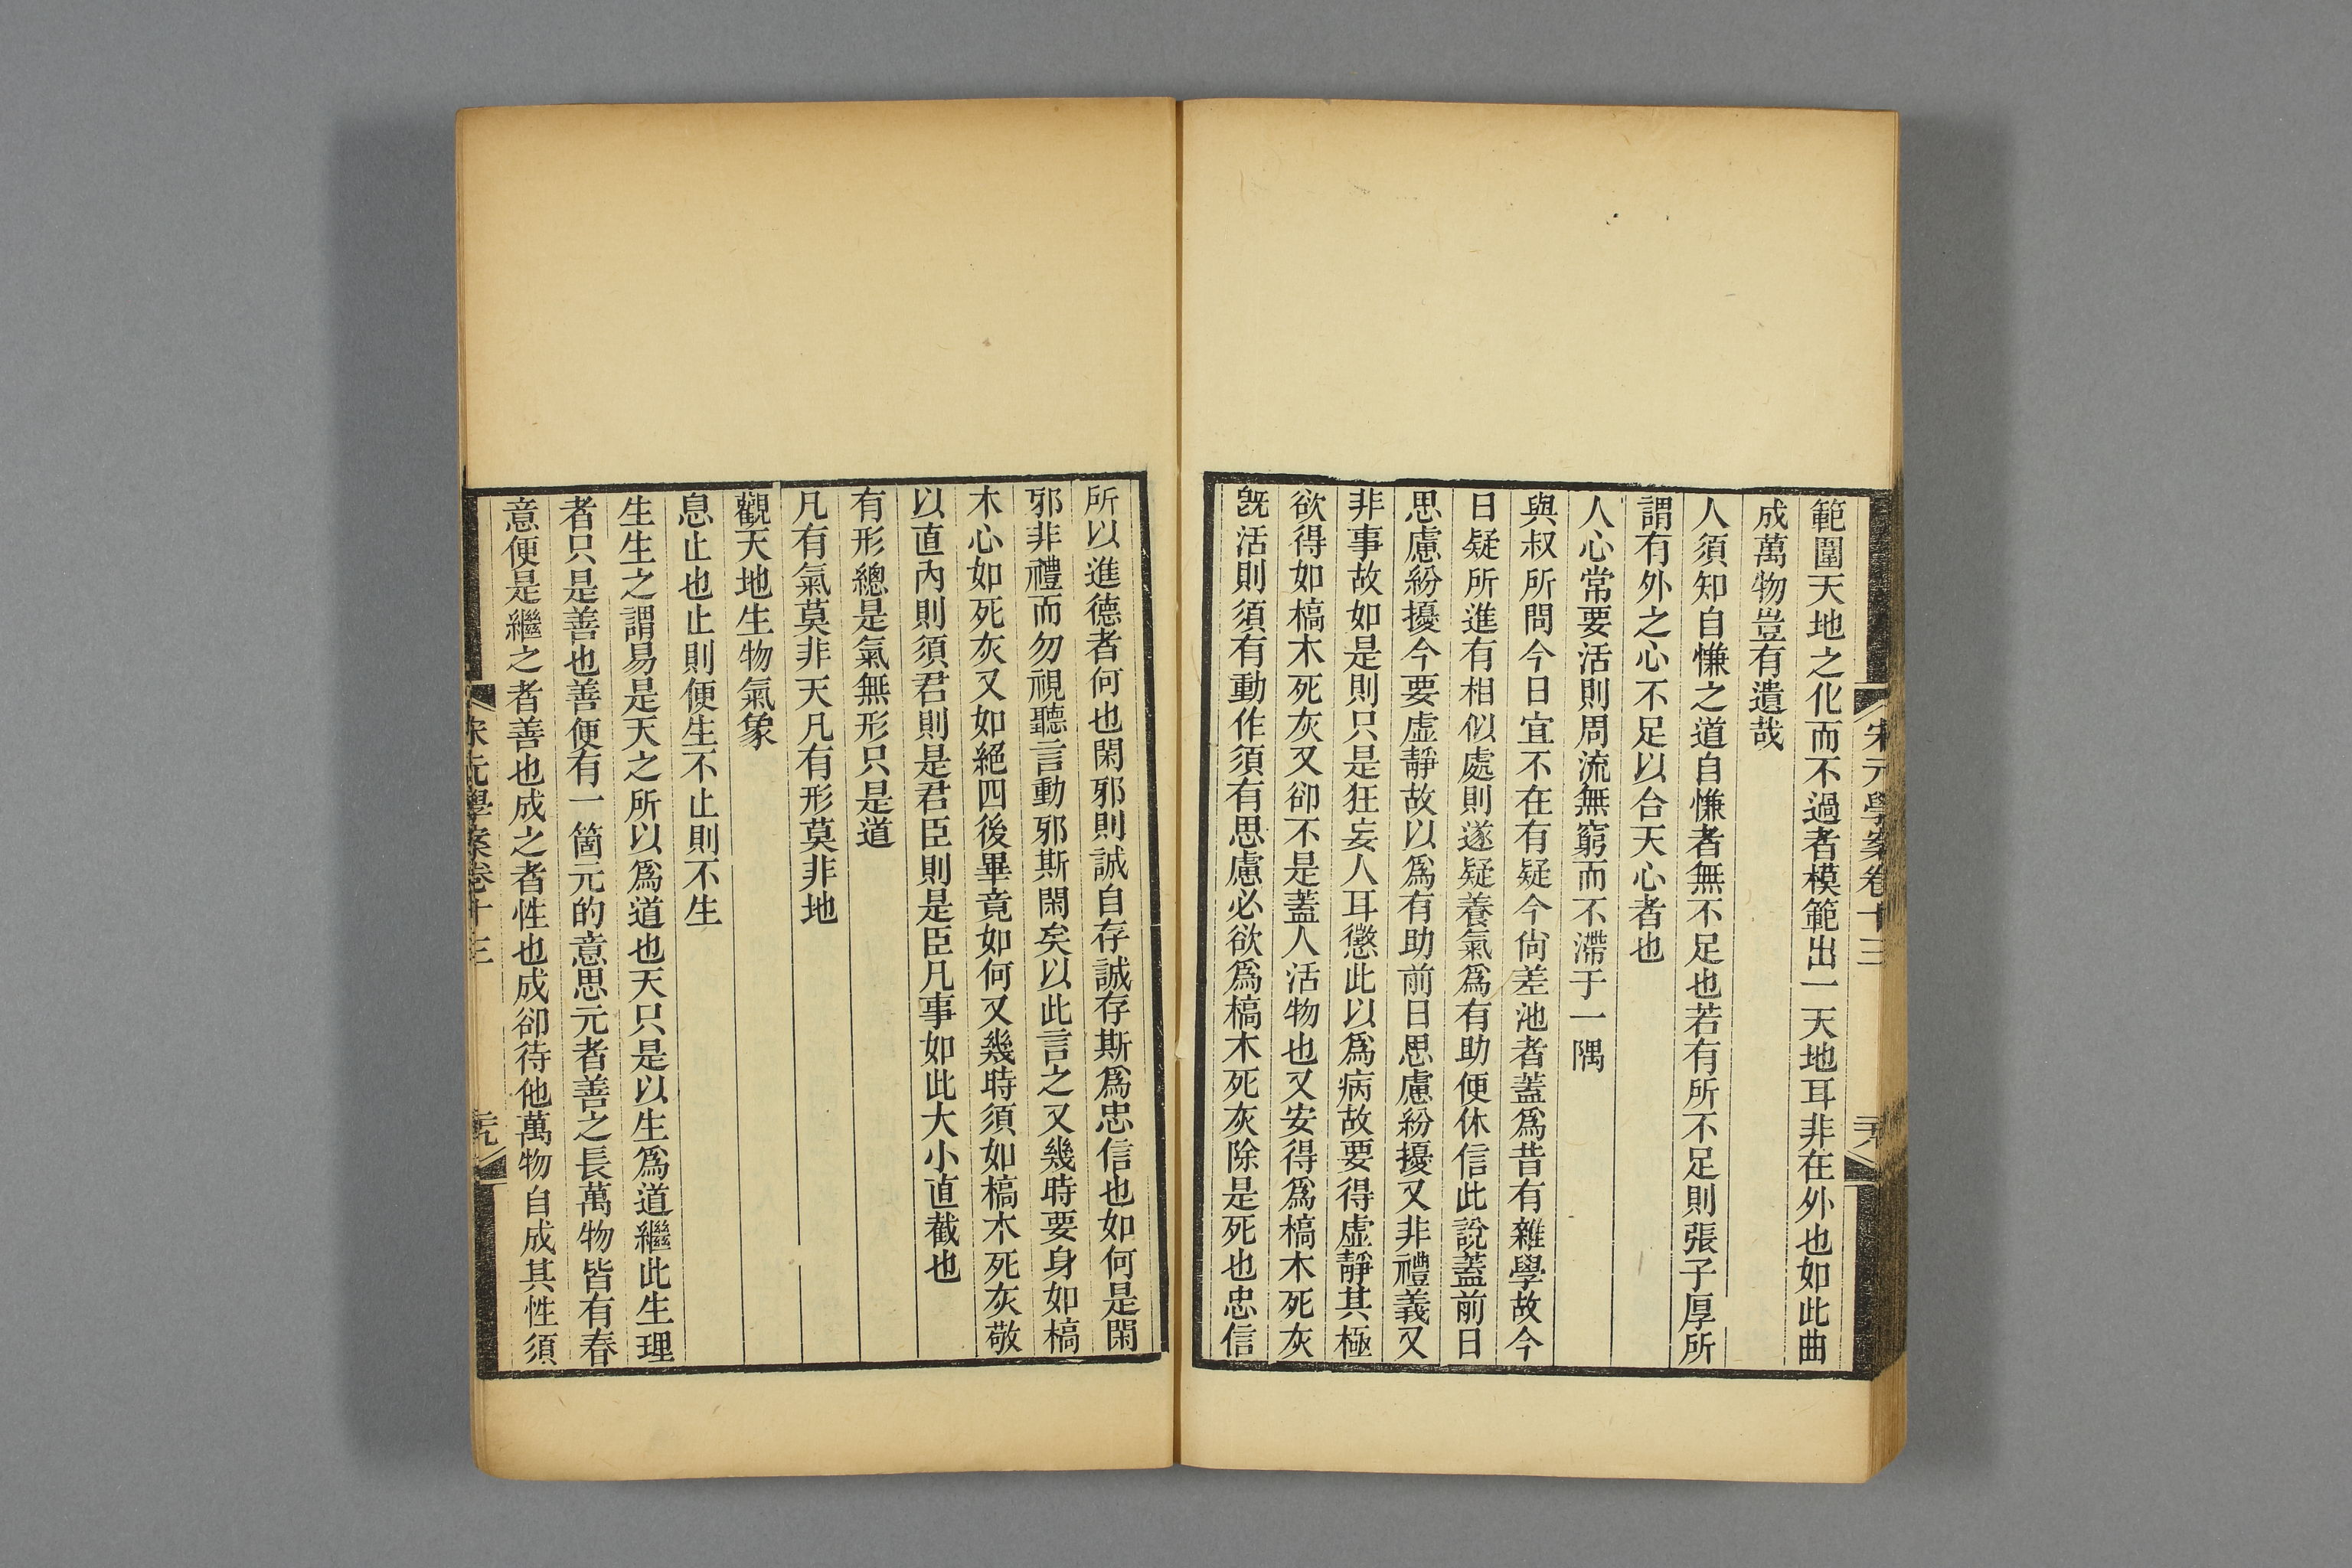 宋元學案卷十三
天
範圍天地之化而不過者模範出一天地耳非在外也如此曲
成萬物豈有遺哉
人須知自慊之道自慊者無不足也若有所不足則張子厚所
謂有外之心不足以合天心者也
人心常要活則周流無窮而不滯于一隅
與叔所問今日宜不在有疑今尙差池者蓋爲昔有雜學故今
日疑所進有相似處則遂疑養氣爲有助便休信此說蓋前日
思慮紛擾今要虛靜故以爲有助前日思慮紛擾又非禮義又
非事故如是則只是狂妄人耳懲此以爲病故要得虛靜其極
欲得如槁木死灰又卻不是蓋人活物也又安得爲槁木死灰
旣活則須有動作須有思慮必欲爲槁木死灰除是死也忠信
所以進德者何也閑邪則誠自存誠存斯爲忠信也如何是閑
邪非禮而勿視聽言動邪斯閑矣以此言之又幾時要身如槁
木心如死灰又如絕四後畢竟如何又幾時須如槁木死灰敬
以直內則須君則是君臣則是臣凡事如此大小直截也
有形總是氣無形只是道
凡有氣莫非天凡有形莫非地
觀天地生物氣象
息止也止則便生不止則不生
生生之謂易是天之所以爲道也天只是以生爲道繼此生理
者只是善也善便有一箇元的意思元者善之長萬物皆有春
意便是繼之者善也成之者性也成卻待他萬物自成其性須
宋元學案卷十三